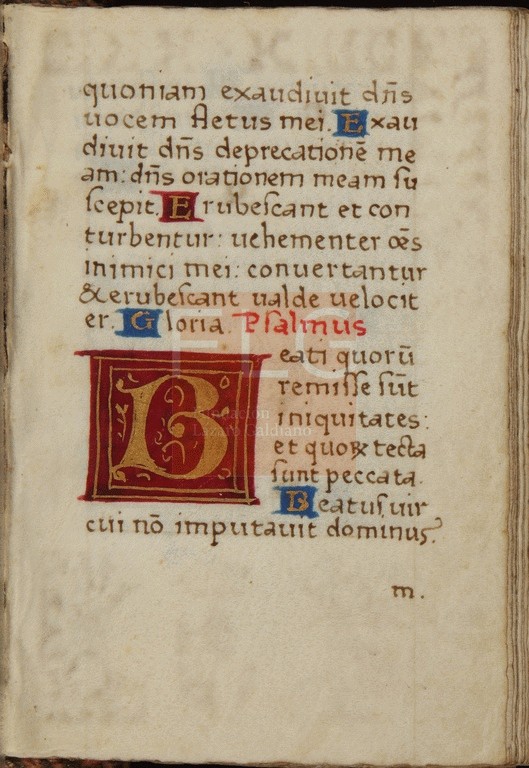 quoniam exaudiuit dn̄s
uocem fletus mei. Exau
diuit dn̄s deprecationē me
am: dn̄s orationem meam su
ſcepit. Erubeſcant et con
turbentur: uehementer oēs
inimici mei: conuertantur
& erubeſcant ualde uelocit
er. Gloria. Pſalmus
Beati quorū
remiſſe sūt
iniquitates:
et quoꝝ tecta
sunt peccata.
Beatus uir
cui nō imputauit dominus
m.
FLG
Fundación
Lázaro Galdiano